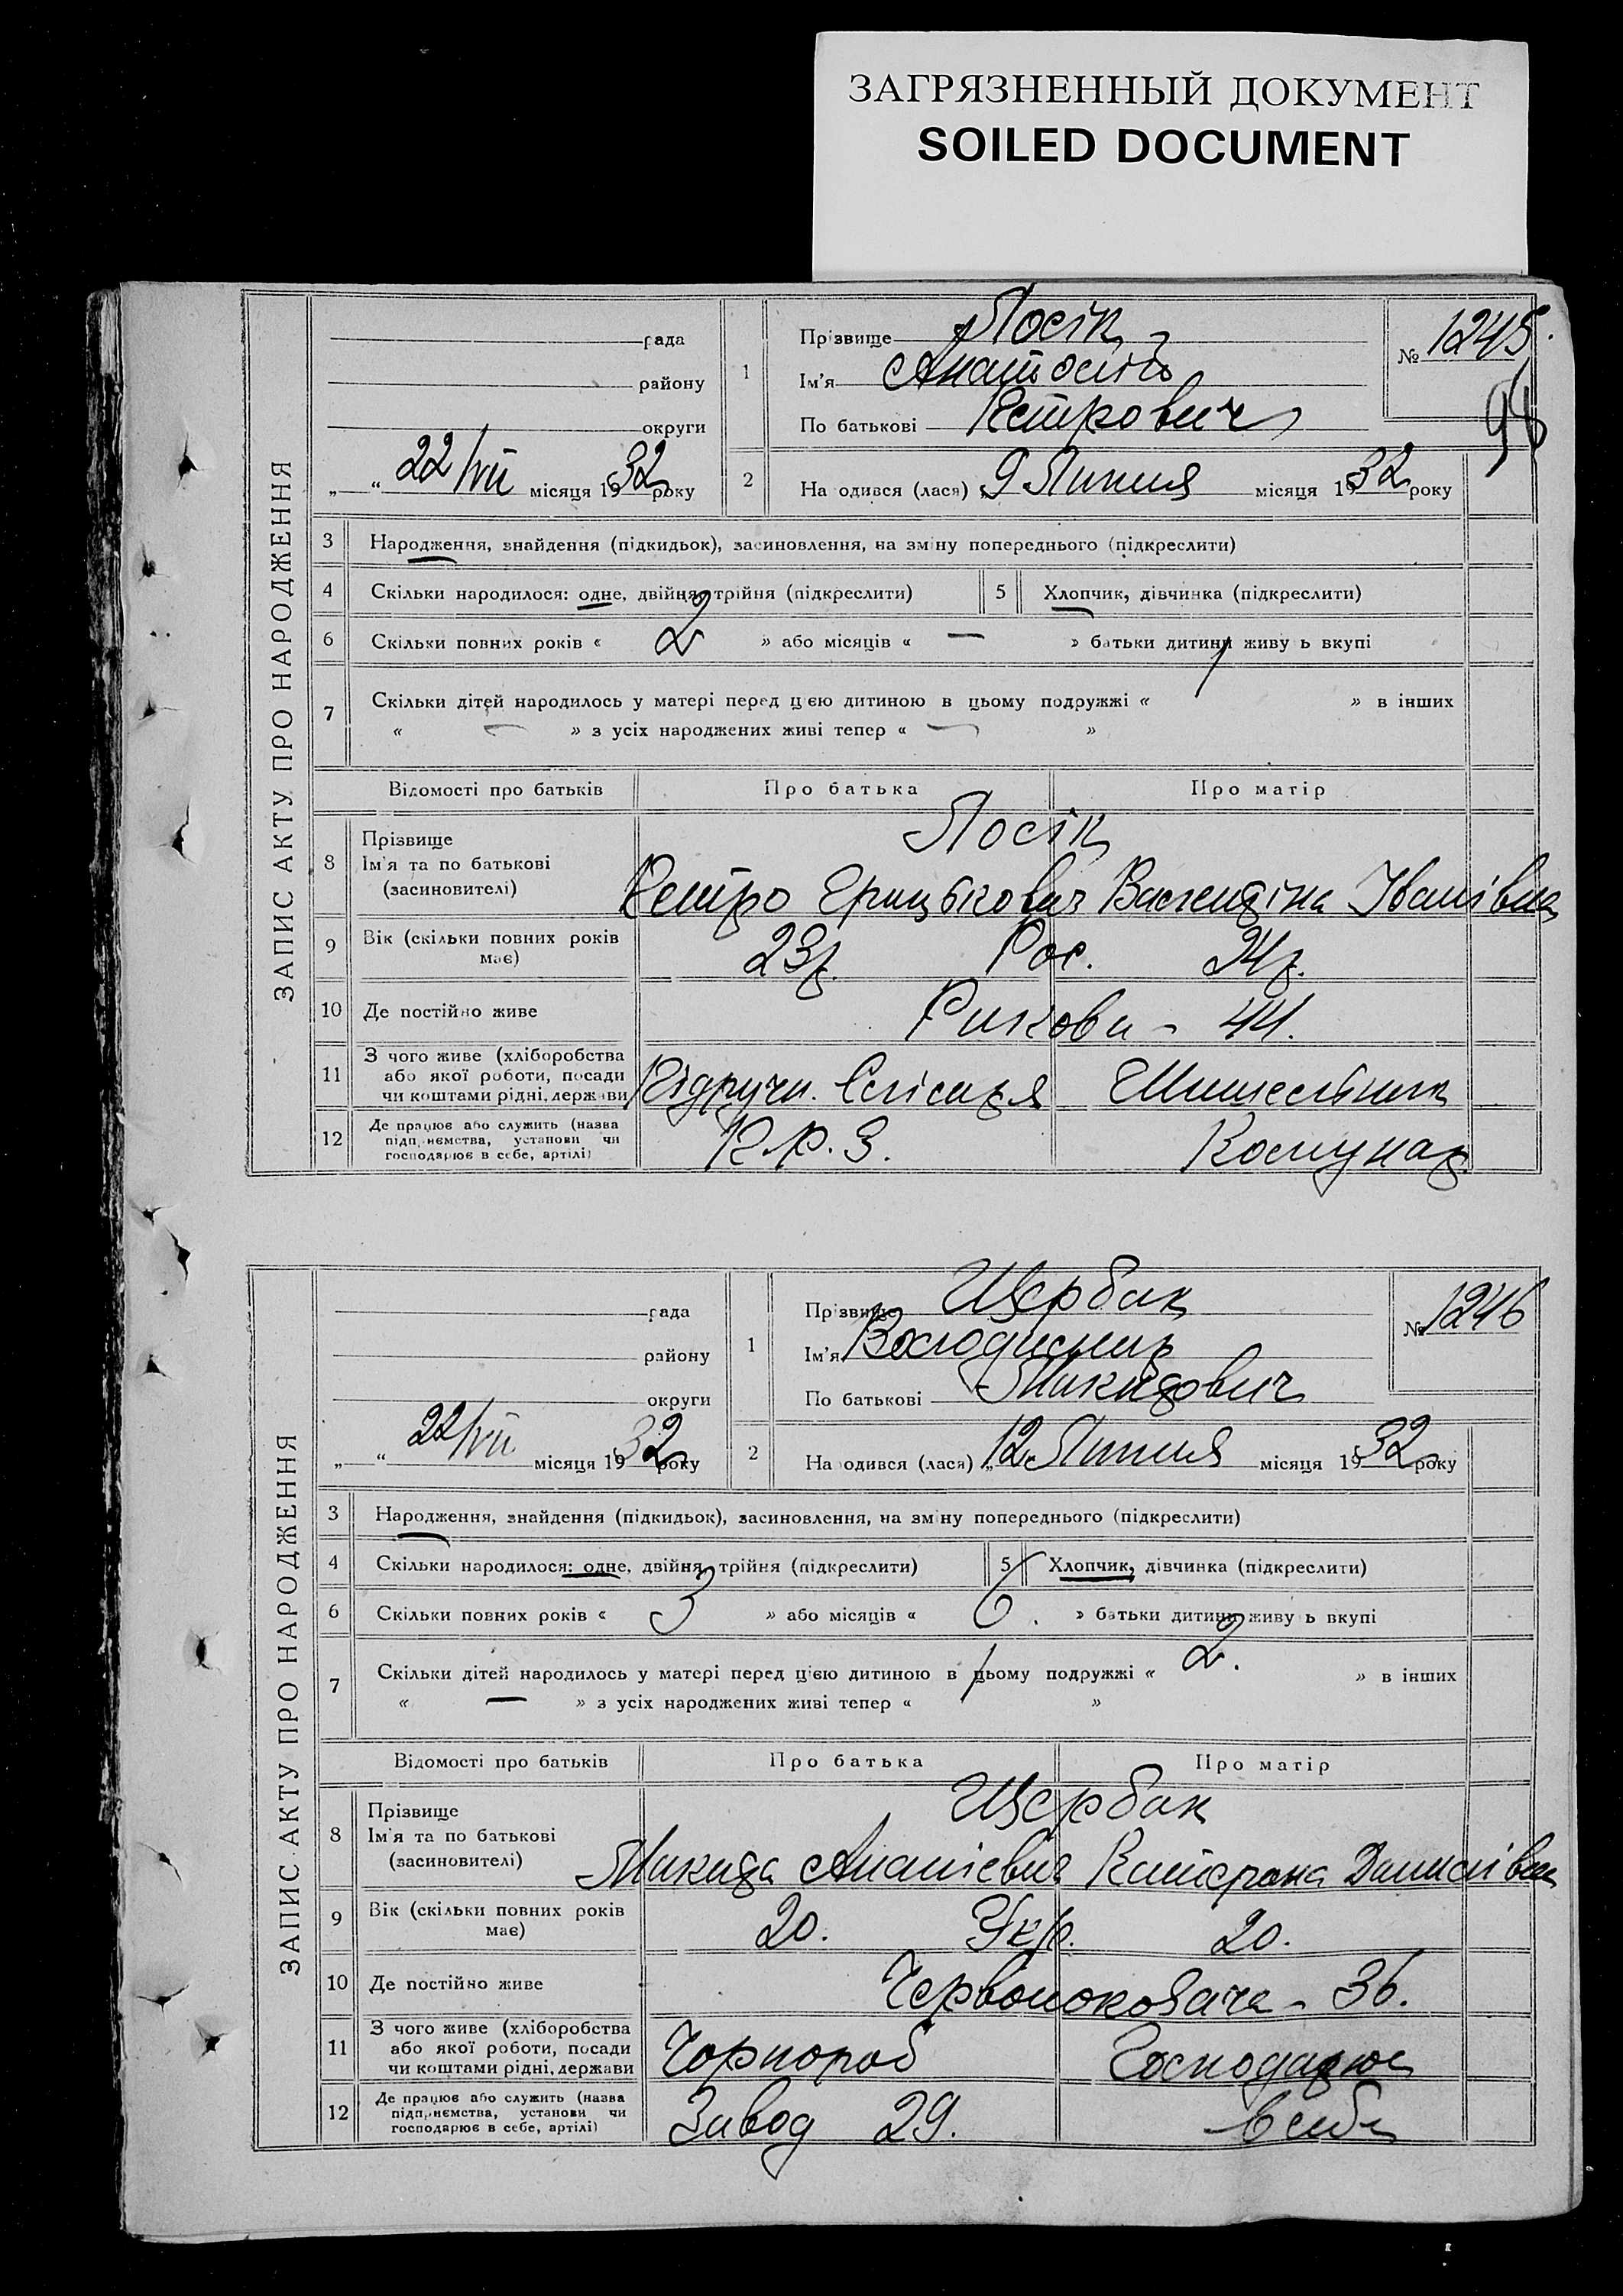 ЗАГРЯЗНЕННЫЙ ДОКУМЕНТ
SOILED DOCUMENT
ЗАПИС АКТУ ПРО НАРОДЖЕННЯ
рада
району
округи
„ “ 22/VII місяця 1932 року
1
Прізвище Лосік
Ім'я Анатолій
По батькові Петрович
№ 1245
98
2
На одився (лася) 9 Липня місяця 1932 року
3 Народження, знайдення (підкидьок), засиновлення, на зміну попереднього (підкреслити)
4 Скільки народилося: одне, двійня, трійня (підкреслити)
5 Хлопчик, дівчинка (підкреслити)
6 Скільки повних років « 2 » або місяців « — » батьки дитини живу ь вкупі
7 Скільки дітей народилось у матері перед цією дитиною в цьому подружжі « 1 » в інших
« — » з усіх народжених живі тепер « — »
Відомості про батьків Про батька Про матір
8 Прізвище Лосік
Ім'я та по батькові Петро Грицькович Валентіна Іванівна
(засиновителі)
9 Вік (скільки повних років має) 23р. Рос. 24р.
10 Де постійно живе Рикова - 44.
11 З чого живе (хліборобства
або якої роботи, посади
чи коштами рідні, держави Підручн. Слісаря
12 Де працює або служить (назва
підприємства, установи чи
господарює в себе, артілі) К.Р.З. Комунар
ЗАПИС АКТУ ПРО НАРОДЖЕННЯ
рада
району
округи
„ “ 22/VII місяця 1932 року
1
Прізвище Щербак
Ім'я Володимир
По батькові Микидович
№ 1246
2
На одився (лася) „12 Липня місяця 1932 року
3 Народження, знайдення (підкидьок), засиновлення, на зміну попереднього (підкреслити)
4 Скільки народилося: одне, двійня, трійня (підкреслити)
5 Хлопчик, дівчинка (підкреслити)
6 Скільки повних років « 3 » або місяців « 6. » батьки дитини живу ь вкупі
7 Скільки дітей народилось у матері перед цією дитиною в цьому подружжі « 2. » в інших
« — » з усіх народжених живі тепер « 1 »
Відомості про батьків Про батька Про матір
8 Прізвище Щербак
Ім'я та по батькові Микида Ананієвич Катерина Данилівна
(засиновителі)
9 Вік (скільки повних років має) 20. Укр. 20.
10 Де постійно живе - 36.
11 З чого живе (хліборобства
або якої роботи, посади
чи коштами рідні, держави Чорнороб Господарює
12 Де працює або служить (назва
підприємства, установи чи
господарює в себе, артілі) Завод 29. в себе